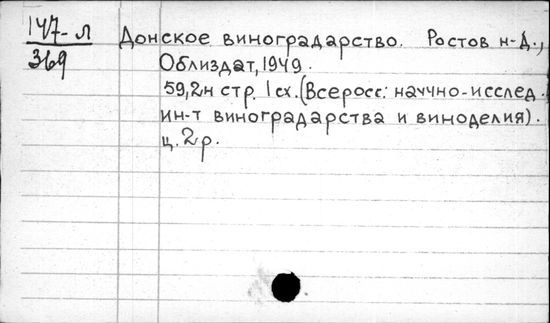 147-л
369
Донское виноградарство. Ростов н-Д.,
Облиздат, 1949.
59,2н стр. 1 сх. (Всеросс: научно-исслед.
ин-т виноградарства и виноделия).
ц. 2 р.